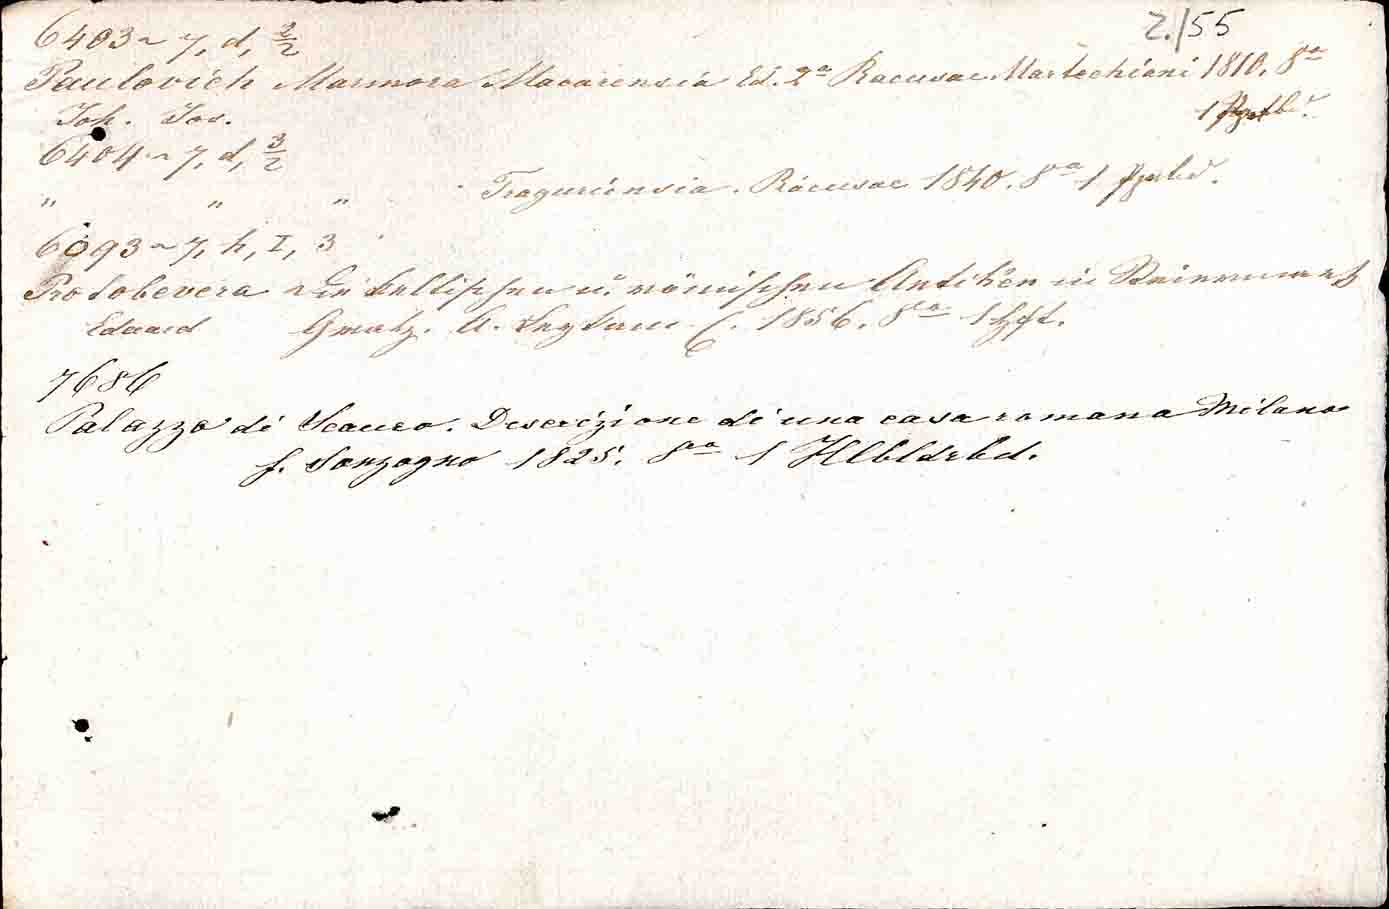 2./55
6403 ~ 7, d, 3/2
Paulovich Marmora Macarensia Ed. 2a Racusae Martechini 1810. 8a
Joh. Jos. 1
6404 ~ 7, d, 3/2
" " " Traguriensia. Racusae 1840. 8a 1
6093 ~ 7, h, I, 3
Protobevera Die keltischen u. römischen Antiken in Steiermark
Eduard Gratz. A. Leykam. 1856. 8va 1 Hft.
7686
Palazzo di Scauro. Descrizione di una casa romana Milano
f. Sonzogno 1825. 8va 1 Hlbldrbd.